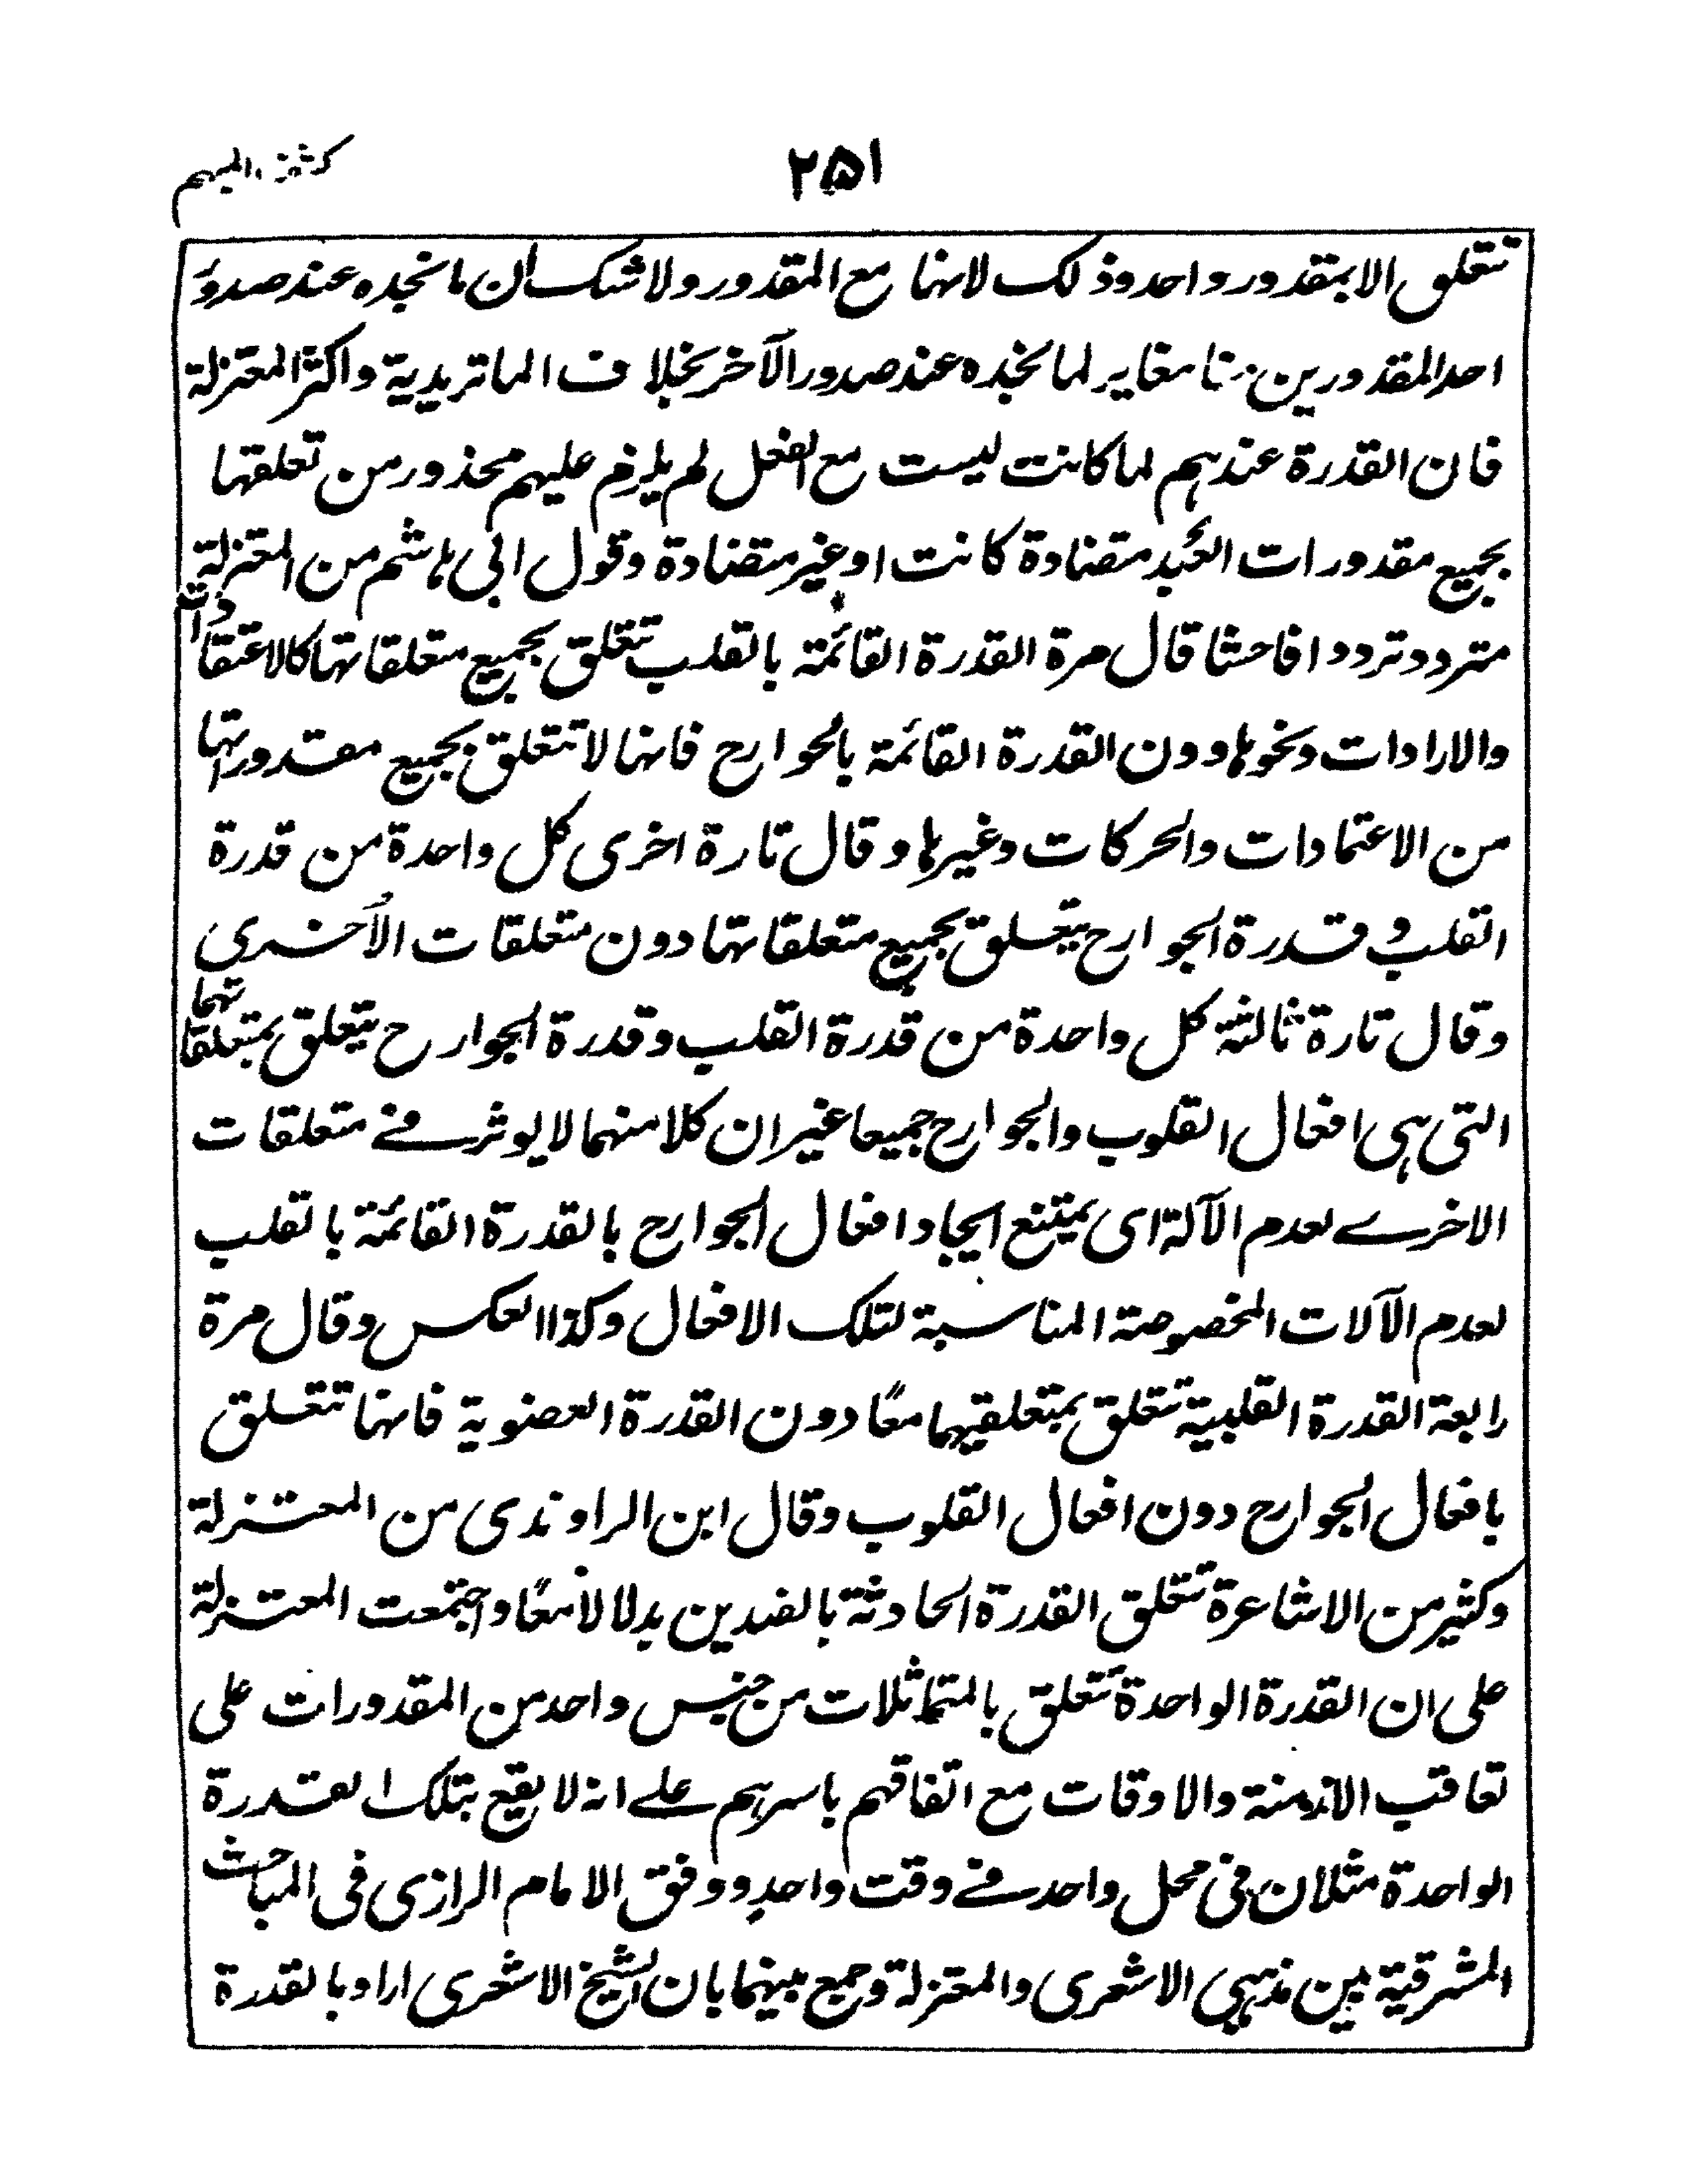 كشف المبهم
۲۵۱
تتعلق الا بمقدور واحد وذلك لانها مع المقدور ولا شك ان ما نجده عند صدور
احد المقدورين منا مغاير لما نجده عند صدور الآخر بخلاف الماتريدية واكثر المعتزلة
فان القدرة عندهم لما كانت ليست مع الفعل لم يلزم عليهم محذور من تعلقها
بجميع مقدورات العبد متضادة كانت او غير متضادة وقول ابي هاشم من المعتزلة
متردد ترددا فاحشا قال مرة القدرة القائمة بالقلب تتعلق بجميع متعلقاتها كالاعتقادات
والارادات ونحوها دون القدرة القائمة بالجوارح فانها لا تتعلق بجميع مقدوراتها
من الاعتمادات والحركات وغيرها وقال تارة اخرى كل واحدة من قدرة
القلب وقدرة الجوارح يتعلق بجميع متعلقاتها دون متعلقات الأخرى
وقال تارة ثالثة كل واحدة من قدرة القلب وقدرة الجوارح يتعلق بمتعلقاتهما
التى هى افعال القلوب والجوارح جميعا غير ان كلا منهما لا يوثر فے متعلقات
الاخرے لعدم الآلة اى يمتنع ايجاد افعال الجوارح بالقدرة القائمة بالقلب
لعدم الآلات المخصوصة المناسبة لتلك الافعال وكذا العكس وقال مرة
رابعة القدرة القلبية تتعلق بمتعلقيهما معًا دون القدرة العضوية فانها تتعلق
بافعال الجوارح دون افعال القلوب وقال ابن الراوندى من المعتزلة
وكثير من الاشاعرة تتعلق القدرة الحادثة بالضدين بدلا لا معًا واجتمعت المعتزلة
على ان القدرة الواحدة تتعلق بالمتماثلات من جنس واحد من المقدورات على
تعاقب الازمنة والاوقات مع اتفاقهم باسرهم علے انه لا يقع بتلك القدرة
الواحدة مثلان فى محل واحد فے وقت واحد ووفق الامام الرازى فى المباحث
المشرقية بين مذهبى الاشعرى والمعتزلة وجمع بينهما بان الشيخ الاشعرى اراد بالقدرة